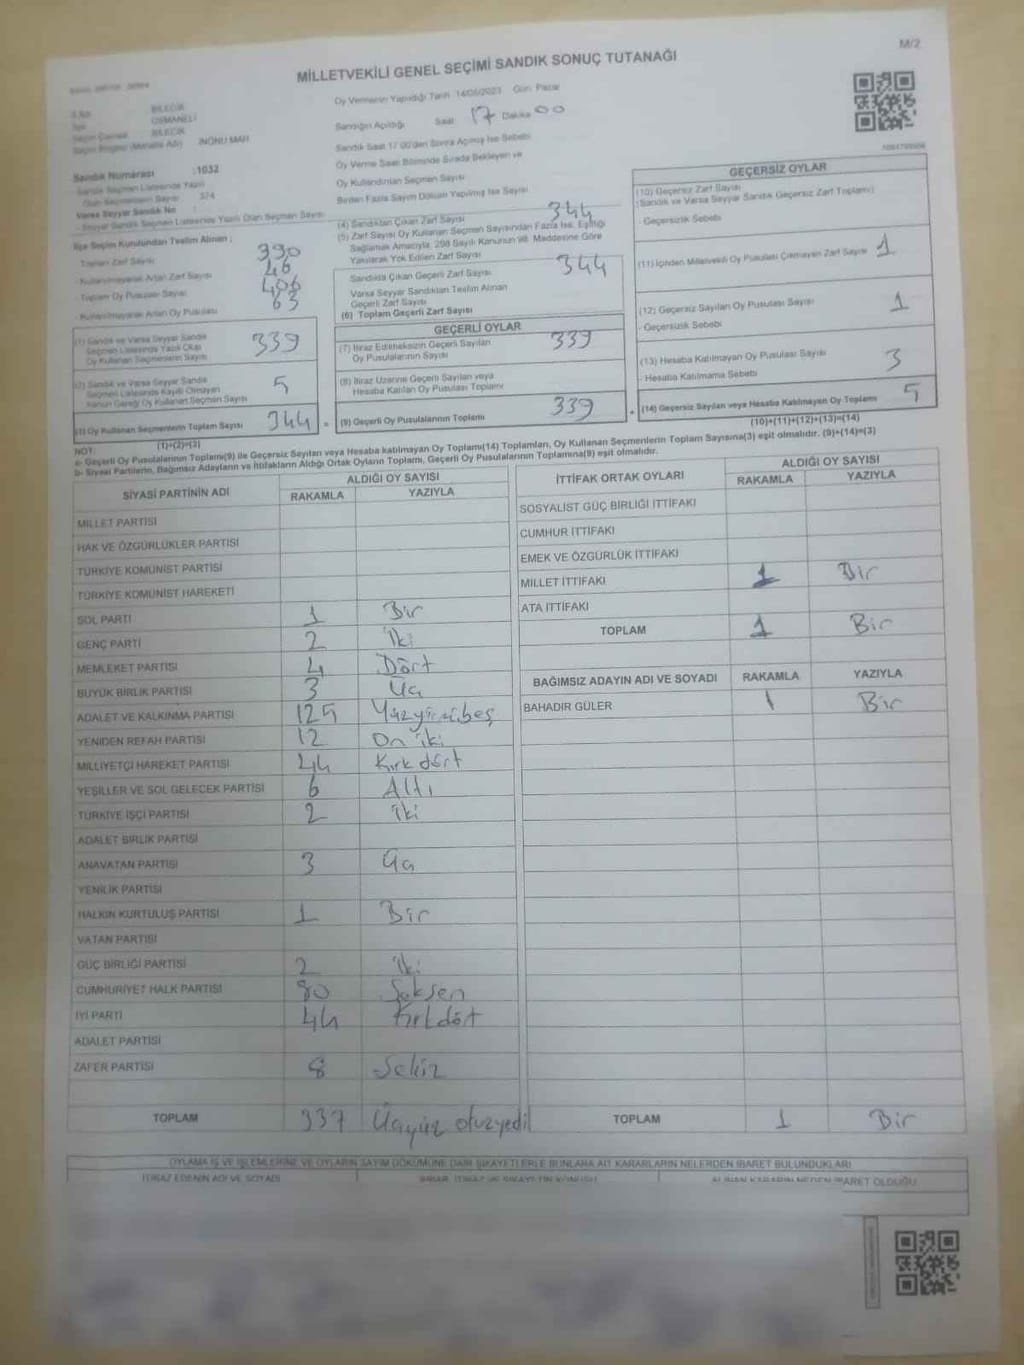 M/2
MİLLETVEKİLİ GENEL SEÇİMİ SANDIK SONUÇ TUTANAĞI
BİLECİK
OSMANELİ
BİLECİK
İNÖNÜ MAH
Oy Vermenin Yapıldığı Tarih 14/05/2023 Gün Pazar
Sandığın Açıldığı Saat 17 Dakika 00
Sandık Saat 17:00'den Sonra Açılmış İse Sebebi
Oy Verme Saati Bitiminde Sırada Bekleyen ve
Oy Kullandırılan Seçmen Sayısı
Birden Fazla Sayım Döküm Yapılmış İse Sayısı
Sandık Numarası :1032
Sandık Seçmen Listesinde Yazılı
Olan Seçmenlerin Sayısı 374
Varsa Seyyar Sandık No
- Seyyar Sandık Seçmen Listesinde Yazılı Olan Seçmen Sayısı
İlçe Seçim Kurulundan Teslim Alınan ;
Toplam Zarf Sayısı 390
- Kullanılmayarak Artan Zarf Sayısı 46
- Toplam Oy Pusulası Sayısı 406
- Kullanılmayarak Artan Oy Pusulası 63
(1) Sandık ve Varsa Seyyar Sandık
Seçmen Listesinde Yazılı Olup
Oy Kullanan Seçmenlerin Sayısı 339
(2) Sandık ve Varsa Seyyar Sandık
Seçmen Listesinde Kayıtlı Olmayan
Kanun Gereği Oy Kullanan Seçmen Sayısı 5
(3) Oy Kullanan Seçmenlerin Toplam Sayısı 344 =
(1)+(2)=(3)
(4) Sandıktan Çıkan Zarf Sayısı 344
(5) Zarf Sayısı Oy Kullanan Seçmen Sayısından Fazla İse, Eşitliği
Sağlamak Amacıyla, 298 Sayılı Kanunun 98. Maddesine Göre
Yakılarak Yok Edilen Zarf Sayısı
Sandıkta Çıkan Geçerli Zarf Sayısı 344
Varsa Seyyar Sandıktan Teslim Alınan
Geçerli Zarf Sayısı
(6) Toplam Geçerli Zarf Sayısı
GEÇERLİ OYLAR
(7) İtiraz Edilmeksizin Geçerli Sayılan
Oy Pusulalarının Sayısı 339
(8) İtiraz Üzerine Geçerli Sayılan veya
Hesaba Katılan Oy Pusulası Toplamı
(9) Geçerli Oy Pusulalarının Toplamı 339 +
GEÇERSİZ OYLAR
(10) Geçersiz Zarf Sayısı
(Sandık ve Varsa Seyyar Sandık Geçersiz Zarf Toplamı)
- Geçersizlik Sebebi
(11) İçinden Milletvekili Oy Pusulası Çıkmayan Zarf Sayısı 1
(12) Geçersiz Sayılan Oy Pusulası Sayısı 1
- Geçersizlik Sebebi
(13) Hesaba Katılmayan Oy Pusulası Sayısı 3
- Hesaba Katılmama Sebebi
(14) Geçersiz Sayılan veya Hesaba Katılmayan Oy Toplamı 5
(10)+(11)+(12)+(13)=(14)
NOT:
a- Geçerli Oy Pusulalarının Toplamı(9) ile Geçersiz Sayılan veya Hesaba katılmayan Oy Toplamı(14) Toplamları, Oy Kullanan Seçmenlerin Toplam Sayısına(3) eşit olmalıdır. (9)+(14)=(3)
b- Siyasi Partilerin, Bağımsız Adayların ve İttifakların Aldığı Ortak Oyların Toplamı, Geçerli Oy Pusulalarının Toplamına(9) eşit olmalıdır.
SİYASİ PARTİNİN ADI ALDIĞI OY SAYISI
RAKAMLA YAZIYLA
MİLLET PARTİSİ
HAK VE ÖZGÜRLÜKLER PARTİSİ
TÜRKİYE KOMÜNİST PARTİSİ
TÜRKİYE KOMÜNİST HAREKETİ
SOL PARTİ 1 Bir
GENÇ PARTİ 2 İki
MEMLEKET PARTİSİ 4 Dört
BÜYÜK BİRLİK PARTİSİ 3 Üç
ADALET VE KALKINMA PARTİSİ 125 Yüzyirmibeş
YENİDEN REFAH PARTİSİ 12 On iki
MİLLİYETÇİ HAREKET PARTİSİ 44 Kırk dört
YEŞİLLER VE SOL GELECEK PARTİSİ 6 Altı
TÜRKİYE İŞÇİ PARTİSİ 2 İki
ADALET BİRLİK PARTİSİ
ANAVATAN PARTİSİ 3 Üç
YENİLİK PARTİSİ
HALKIN KURTULUŞ PARTİSİ 1 Bir
VATAN PARTİSİ
GÜÇ BİRLİĞİ PARTİSİ 2 İki
CUMHURİYET HALK PARTİSİ 80 Seksen
İYİ PARTİ 44 Kırkdört
ADALET PARTİSİ
ZAFER PARTİSİ 8 Sekiz
TOPLAM 337 Üçyüz otuzyedi
İTTİFAK ORTAK OYLARI ALDIĞI OY SAYISI
RAKAMLA YAZIYLA
SOSYALİST GÜÇ BİRLİĞİ İTTİFAKI
CUMHUR İTTİFAKI
EMEK VE ÖZGÜRLÜK İTTİFAKI
MİLLET İTTİFAKI 1 Bir
ATA İTTİFAKI
TOPLAM 1 Bir
BAĞIMSIZ ADAYIN ADI VE SOYADI RAKAMLA YAZIYLA
BAHADIR GÜLER 1 Bir
TOPLAM 1 Bir
OYLAMA İŞ VE İŞLEMLERİNE VE OYLARIN SAYIM DÖKÜMÜNE DAİR ŞİKAYETLERLE BUNLARA AİT KARARLARIN NELERDEN İBARET BULUNDUKLARI
İTİRAZ EDENİN ADI VE SOYADI
ALINAN KARARIN NEDEN İBARET OLDUĞU